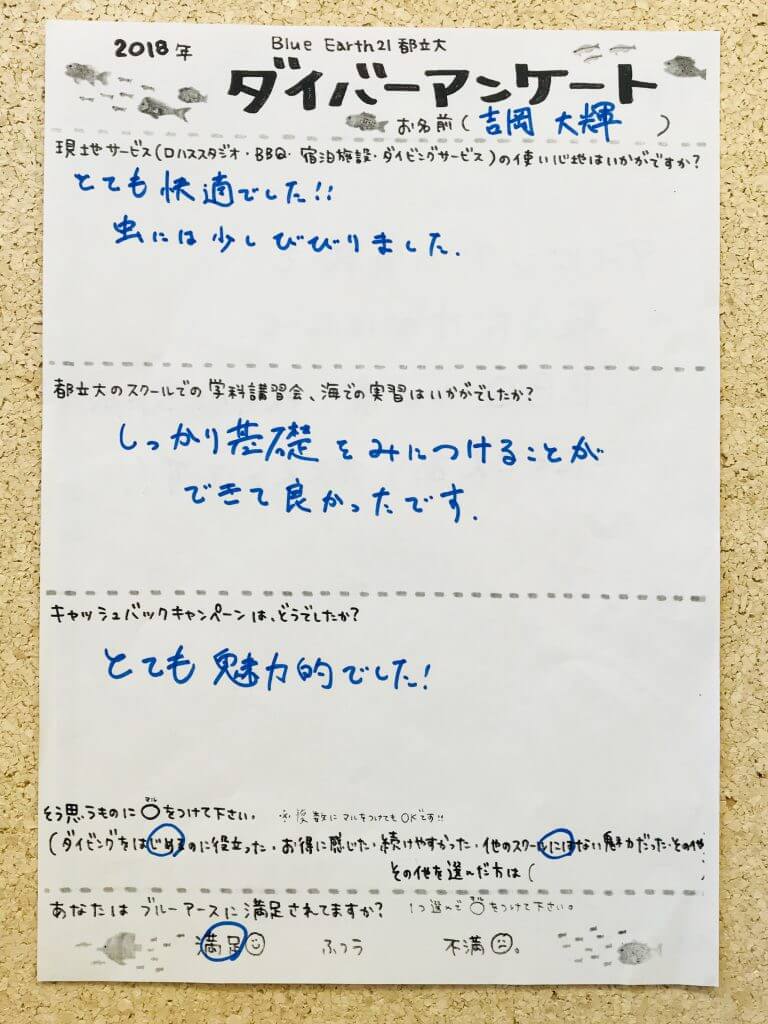 2018年
Blue Earth21 都立大
ダイバーアンケート
お名前 ( 吉岡 大輝 )
現地サービス(ロハススタジオ・BBQ・宿泊施設・ダイビングサービス)の使い心地はいかがですか?
とても快適でした!!
虫には少しびびりました.
都立大のスクールでの学科講習会、海での実習はいかがでしたか?
しっかり基礎をみにつけることが
できて良かったです.
キャッシュバックキャンペーンは、どうでしたか?
とても魅力的でした!
そう思うものに○をつけて下さい。 ※複数にマルをつけてもOKです!!
(ダイビングをはじめるのに役立った・お得に感じた・続けやすかった・他のスクールにはない魅力だった・その他
その他を選んだ方は (
あなたは ブルーアースに満足されてますか? 1つ選んで○をつけて下さい。
満足 ふつう 不満。